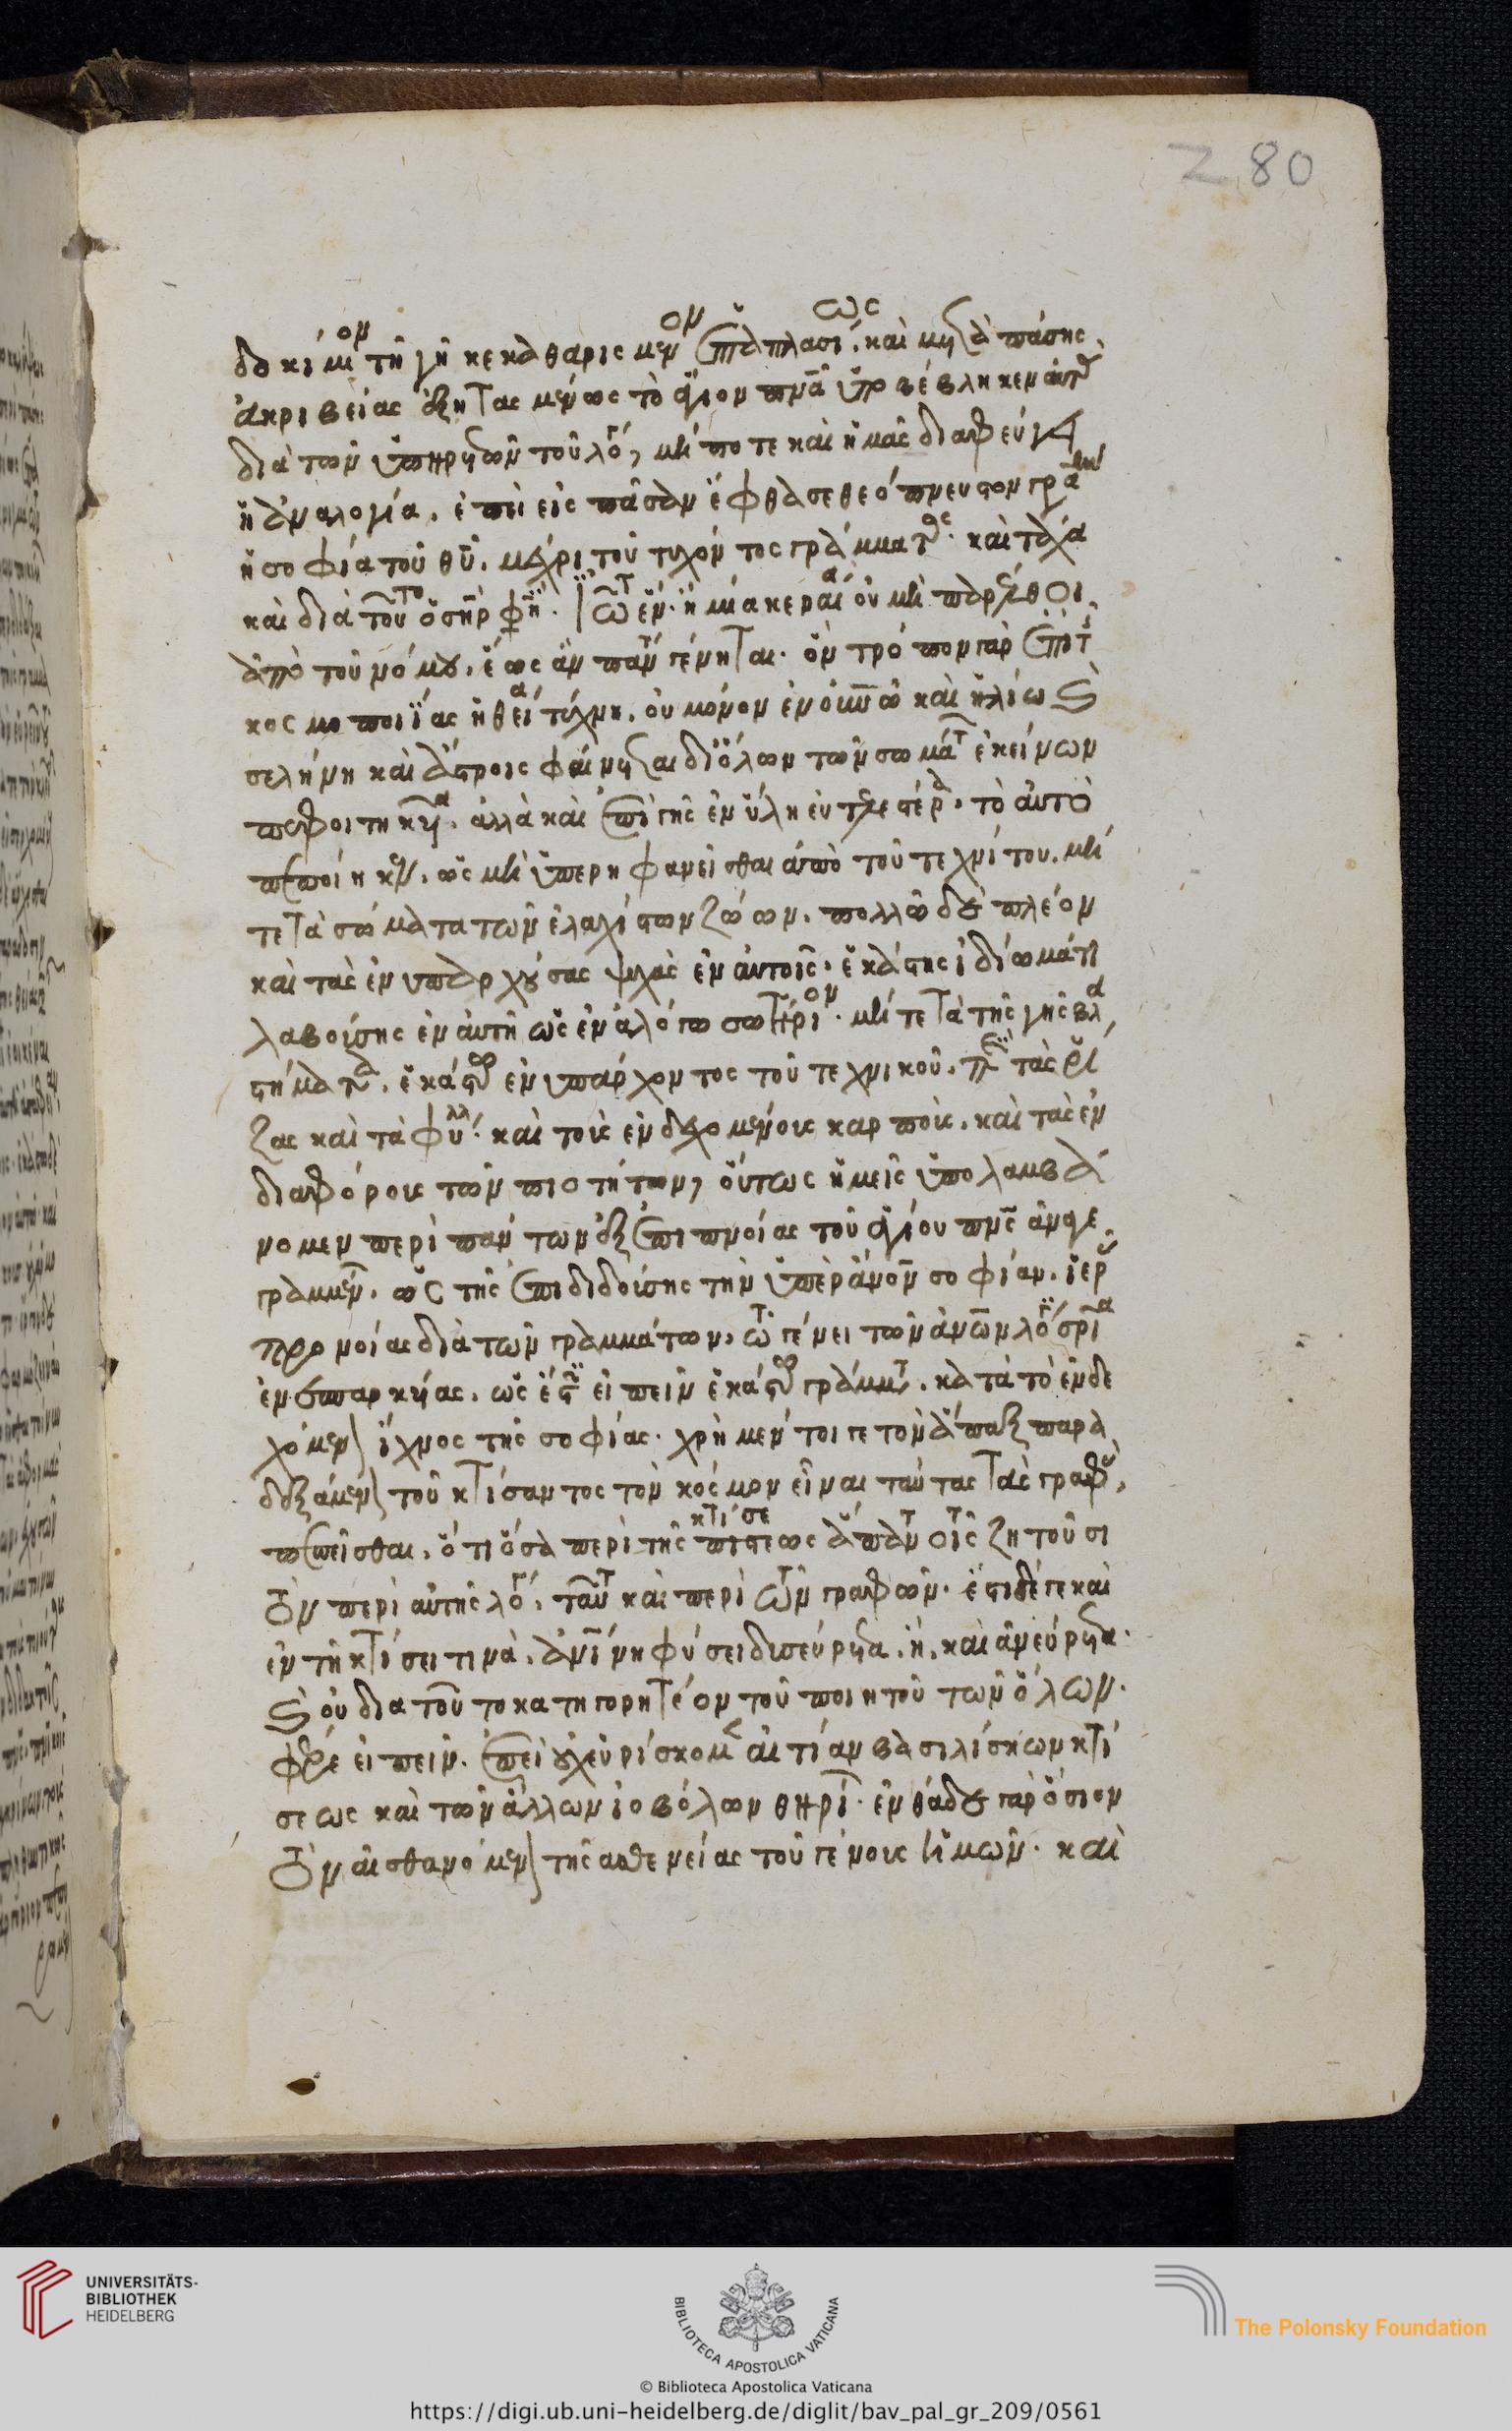 δοκίμιον τῆ γῆ κεκαθαρισμένον ἑπταπλασίως, καὶ μετὰ πάσης
ἀκριβείας ἐξητασμένως τὸ ἅγιον πνᾶ ὑποβέβληκεν αὐτὰ
διὰ τῶν ὑπηρετῶν τοῦ λόγου, μήποτε καὶ ἡμᾶς διαφεύγη
ἡ ἀναλογία. ἐπεὶ εἰς πᾶσαν ἔφθασε θεόπνευστον γραφὴν
ἡ σοφία τοῦ θῦ. μέχρι τοῦ τυχόντος γράμματος. καὶ τάχα
καὶ διὰ τοῦτο ὁ σὴρ φησὶ. ἰῶτα ἕν. ἢ μία κεραία οὐ μὴ παρέλθοι
ἀπὸ τοῦ νόμου. ἕως ἂν πάντα γένηται. ὃν τρόπον γὰρ ἐπὶ τῆς
κοσμοποιΐας ἡ θεία τέχνη. οὐ μόνον ἐν οὐνῶ καὶ ἡλίω καὶ
σελήνη καὶ ἄστροις φαίνεται δι' ὅλων τῶν σωμάτων ἐκείνων
πεφοιτηκυῖα. ἀλλὰ καὶ ἐπὶ γῆς ἐν ὕλη εὐτελεστέρα. τὸ αὐτὸ
πεποίηκεν. ὡς μὴ ὑπερηφανεῖσθαι ἀπὸ τοῦ τεχνίτου. μή
τε τὰ σώματα τῶν ἐλαχίστων ζώων. πολλῶ δὲ πλέον
καὶ τὰς ἐνυπαρχούσας ψυχὰς ἐν αὐτοῖς. ἑκάστης ἰδίωμά τι
λαβούσης ἐν αὐτῆ ὡς ἐν ἀλόγω σωτήριον. μήτε τὰ τῆς γῆς βλα
στήματα. ἑκάστω ἐνυπάρχοντος τοῦ τεχνικοῦ. περὶ τὰς ῥί
ζας καὶ τὰ φύλλα. καὶ τοὺς ἐνδεχομένους καρποὺς. καὶ τὰς ἐν
διαφόρους τῶν ποιοτήτων, οὕτως ἡμεῖς ὑπολαμβά
νομεν περὶ πάντων ἐξ ἐπιπνοίας τοῦ ἁγίου πνς ἀναγε
γραμμένων. ὡς τῆς ἐπιδιδούσης τὴν ὑπεράνον σοφίαν. ἱερᾶς
προνοίας διὰ τῶν γραμμάτων. τῶ γένει τῶν ἀνῶν λόγια σρια
ἐνσπαρκυίας. ὡς ἔστιν εἰπεῖν ἑκάστω γράμματι. κατὰ τὸ ἐνδε
χόμενον ἴχνος τῆς σοφίας. χρὴ μέντοι γε τὸν ἅπαξ παρα
δεξάμενον τοῦ κτίσαντος τὸν κόσμον εἶναι ταύτας τὰς γραφὰς,
πεπεῖσθαι. ὅτι ὅσα περὶ τῆς κτίσεως ἀπαντᾶ τοῖς ζητοῦσι
τὸν περὶ αὐτῆς λόγον. ταῦτα καὶ περὶ τῶν γραφῶν. ἔστι δέ γε καὶ
ἐν τῆ κτίσει τινὰ. ἀνίνη φύσει δυσεύρετα. ἢ. καὶ ἀνεύρετα.
καὶ οὐ διὰ τοῦτο κατηγορητέον τοῦ ποιητοῦ τῶν ὅλων.
φέρε εἰπεῖν. ἐπεὶ οὐχ εὑρίσκομεν αἰτίαν βασιλίσκων κτί
σεως καὶ τῶν ἄλλων ἰοβόλων θηρίων. ἐνθάδε γὰρ ὅσιον
τὸν αἰσθανόμενον τῆς ἀσθενείας τοῦ γένους ἡμῶν. καὶ
280
UNIVERSITÄTS-
BIBLIOTHEK
HEIDELBERG
BIBLIOTECA APOSTOLICA VATICANA
The Polonsky Foundation
© Biblioteca Apostolica Vaticana
https://digi.ub.uni-heidelberg.de/diglit/bav_pal_gr_209/0561